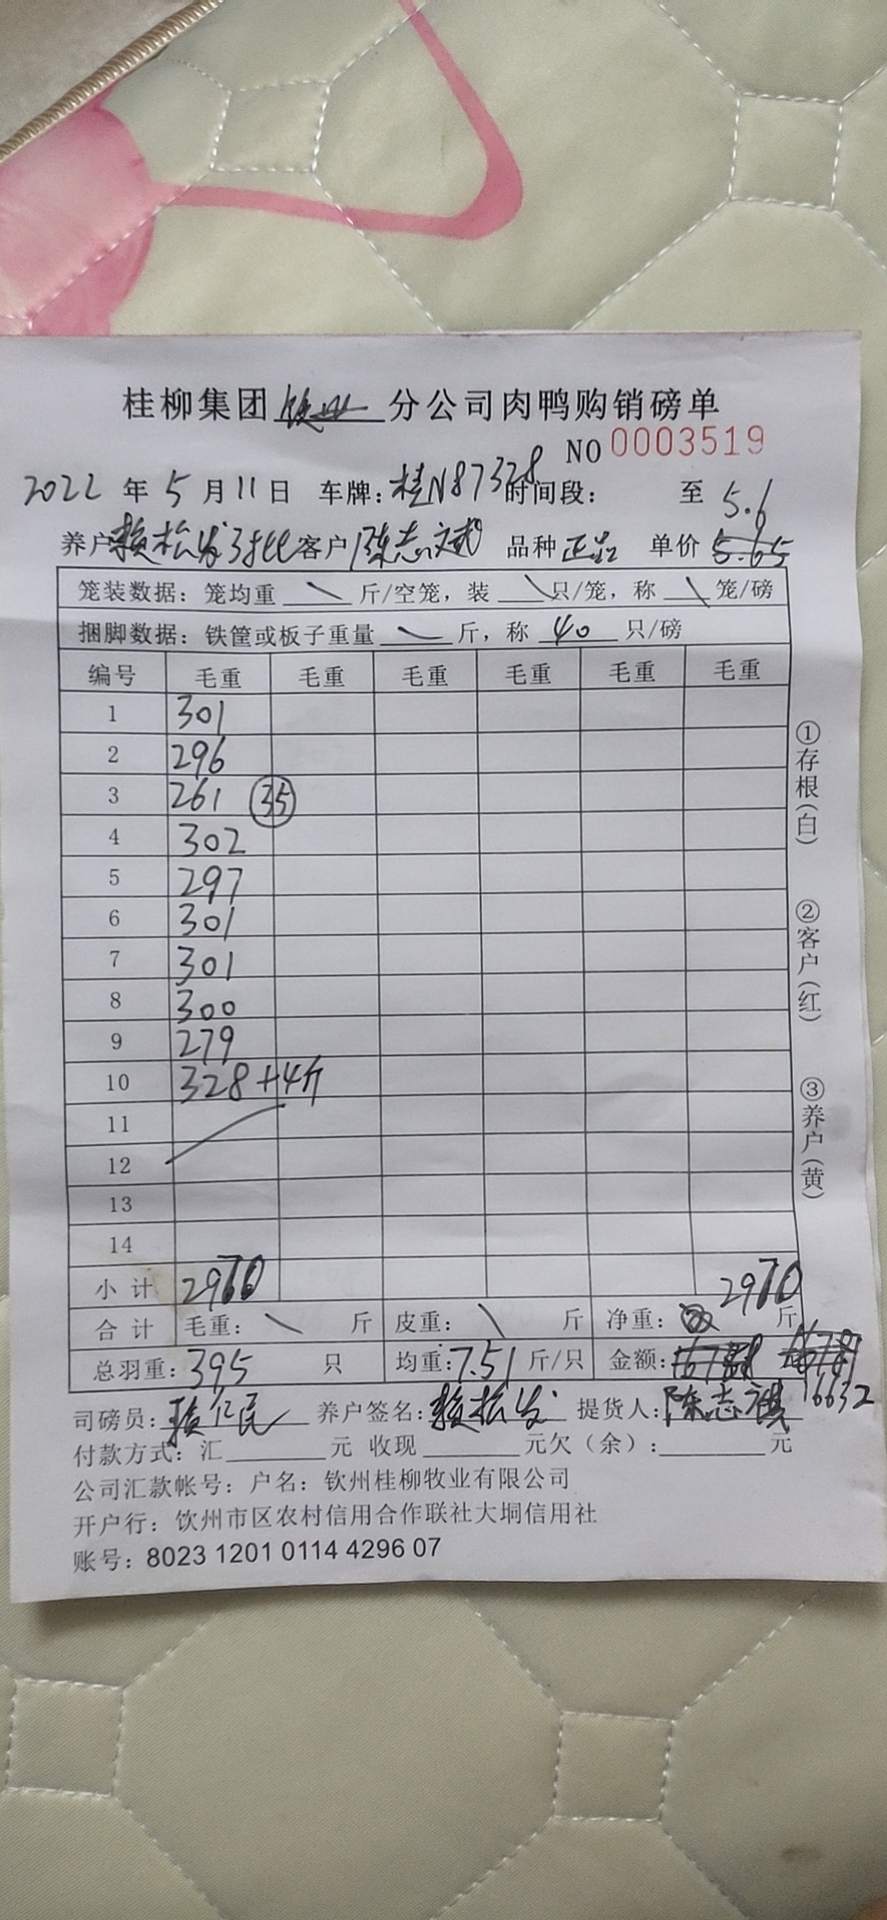 桂柳集团钦州分公司肉鸭购销磅单
NO 0003519
2022年5月11日 车牌:桂N87328 时间段: 至 5.6
养户赖松发3批客户陈志斌 品种正品 单价5.65
笼装数据:笼均重\斤/空笼,装\只/笼,称\笼/磅
捆脚数据:铁筐或板子重量\斤,称40只/磅
编号 毛重 毛重 毛重 毛重 毛重 毛重
1 301
2 296
3 261 35
4 302
5 297
6 301
7 301
8 300
9 279
10 328+4斤
11
12
13
14
小计 2970 2970
合计 毛重:\斤 皮重:\斤 净重: 斤
总羽重:395只 均重:7.51斤/只 金额:
16632
司磅员: 养户签名:赖松发 提货人:陈志祺
付款方式:汇 元 收现 元欠(余): 元
公司汇款帐号:户名:钦州桂柳牧业有限公司
开户行:钦州市区农村信用合作联社大垌信用社
账号:8023 1201 0114 4296 07
①存根(白)
②客户(红)
③养户(黄)